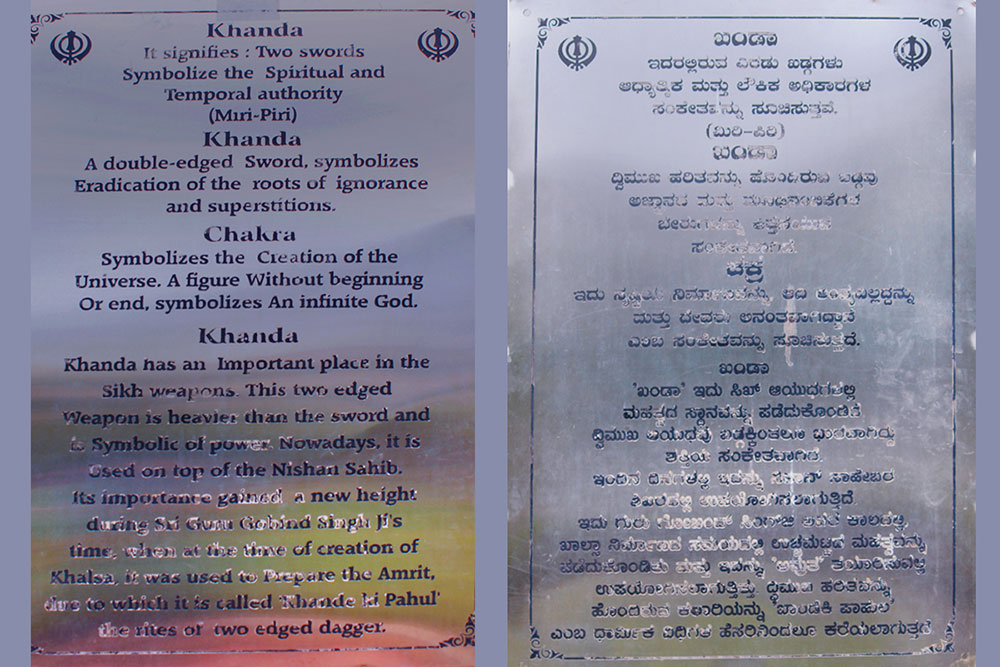 Khanda
It signifies : Two swords
Symbolize the Spiritual and
Temporal authority
(Miri-Piri)
Khanda
A double-edged Sword, symbolizes
Eradication of the roots of ignorance
and superstitions.
Chakra
Symbolizes the Creation of the
Universe. A figure Without beginning
Or end, symbolizes An infinite God.
Khanda
Khanda has an Important place in the
Sikh weapons. This two edged
Weapon is heavier than the sword and
is Symbolic of power. Nowadays, it is
Used on top of the Nishan Sahib.
Its importance gained a new height
during Sri Guru Gobind Singh Ji's
time, when at the time of creation of
Khalsa, it was used to Prepare the Amrit,
due to which it is called 'Khande ki Pahul'
the rites of two edged dagger.
ಖಂಡಾ
ಇದರಲ್ಲಿರುವ ಎರಡು ಖಡ್ಗಗಳು
ಆಧ್ಯಾತ್ಮಿಕ ಮತ್ತು ಲೌಕಿಕ ಅಧಿಕಾರಗಳ
ಸಂಕೇತವನ್ನು ಸೂಚಿಸುತ್ತವೆ.
(ಮಿರಿ-ಪಿರಿ)
ಖಂಡಾ
ದ್ವಿಮುಖ ಹರಿತವನ್ನು ಹೊಂದಿರುವ ಖಡ್ಗವು
ಅಜ್ಞಾನದ ಮತ್ತು
ಚಕ್ರ
ಇದು ಸೃಷ್ಟಿಯ
ಮತ್ತು ದೇವರು ಅನಂತವಾಗಿದ್ದಾನೆ
ಎಂಬ ಸಂಕೇತವನ್ನು ಸೂಚಿಸುತ್ತದೆ.
ಖಂಡಾ
'ಖಂಡಾ' ಇದು ಸಿಖ್ ಆಯುಧಗಳಲ್ಲಿ
ಮಹತ್ವದ ಸ್ಥಾನವನ್ನು ಪಡೆದುಕೊಂಡಿದೆ
ದ್ವಿಮುಖ ಆಯುಧವು ಖಡ್ಗಕ್ಕಿಂತಲೂ
ಶಕ್ತಿಯ ಸಂಕೇತವಾಗಿದೆ.
ಇಂದಿನ ದಿನಗಳಲ್ಲಿ ಇದನ್ನು ನಿಶಾನ್ ಸಾಹೇಬರ
ಉಪಯೋಗಿಸಲಾಗುತ್ತಿದೆ.
ಇದು ಗುರು ಗೋಬಿಂದ್ ಸಿಂಗ್‌ಜಿ ಅವರ ಕಾಲದಲ್ಲಿ,
ಖಾಲ್ಸಾ ನಿರ್ಮಾಣದ ಸಮಯದಲ್ಲಿ ಮಹತ್ವವನ್ನು
ಪಡೆದುಕೊಂಡಿತು ಮತ್ತು ಇದನ್ನು 'ಅಮೃತ'
ಉಪಯೋಗಿಸಲಾಗುತ್ತಿತ್ತು. ದ್ವಿಮುಖ ಹರಿತವನ್ನು
ಹೊಂದಿರುವ ಕಠಾರಿಯನ್ನು
ಎಂಬ ಧಾರ್ಮಿಕ ವಿಧಿಗಳ ಹೆಸರಿನಿಂದಲೂ ಕರೆಯಲಾಗುತ್ತದೆ